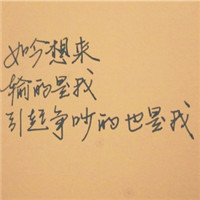 如今想来
输的是我
引起争吵的也是我